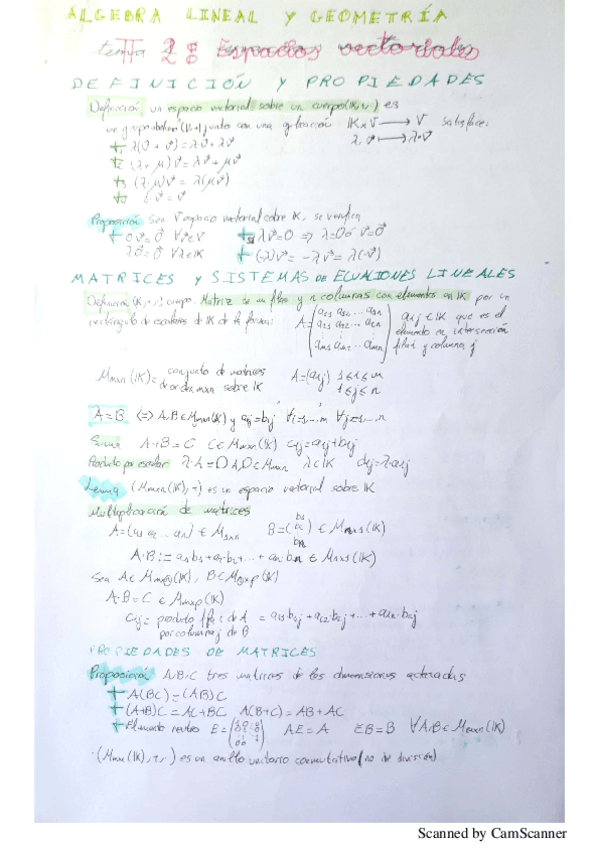 ÁLGEBRA LINEAL Y GEOMETRÍA
tema 2: Espacios vectoriales
DEFINICIÓN Y PROPIEDADES
Definición un espacio vectorial sobre un cuerpo (K,+,·) es
un grupo abeliano (V,+) junto con una aplicación K×V → V satisface:
λ, v → λ·v
λ(v+u) = λv + λu
(λ+μ)v = λv + μv
(λ·μ)v = λ(μv)
1·v = v
Proposición Sea V espacio vectorial sobre K, se verifica
0v = 0 ∀v∈V λv=0 ⇒ λ=0 ó v=0
λ0 = 0 ∀λ∈K (-λ)v = -λv = λ(-v)
MATRICES y SISTEMAS DE ECUACIONES LINEALES
Definición (K,+,·) cuerpo. Matriz de m filas y n columnas con elementos en K por un
rectángulo de escalares de K de la forma: A = (a₁₁ a₁₂ ... a₁ₙ
a₂₁ a₂₂ ... a₂ₙ
⋮
aₘ₁ aₘ₂ ... aₘₙ) aᵢⱼ ∈ K que es el
elemento en intersección
fila i y columna j
Mmxn(K) = conjunto de matrices
de orden mxn sobre K A=(aᵢⱼ) 1≤i≤m
1≤j≤n
A=B ⇔ A,B∈Mmxn(K) y aᵢⱼ=bᵢⱼ ∀i=1...m ∀j=1...n
Suma A+B=C C∈Mmxn(K) cᵢⱼ=aᵢⱼ+bᵢⱼ
Producto por escalar λ·A=D A,D∈Mmxn λ∈K dᵢⱼ=λ·aᵢⱼ
Lema (Mmxn(K),+) es un espacio vectorial sobre K
Multiplicación de matrices
A=(a₁ a₂ ... aₙ) ∈ M1xn B=(b₁
b₂
⋮
bₙ) ∈ Mnx1(K)
A·B := a₁b₁+a₂b₂+...+aₙbₙ ∈ M1x1(K)
Sea A∈Mmxn(K), B∈Mnxp(K)
A·B=C ∈ Mmxp(K)
cᵢⱼ = producto fila i de A = aᵢ₁b₁ⱼ+aᵢ₂b₂ⱼ+...+aᵢₙ·bₙⱼ
por columna j de B
PROPIEDADES DE MATRICES
Proposición A,B,C tres matrices de las dimensiones adecuadas
A(BC)=(AB)C
(A+B)C=AC+BC A(B+C)=AB+AC
Elemento neutro E= AE=A EB=B ∀A,B∈Mmxn(K)
(Mnxn(K),+,·) es un anillo conmutativo (no de división)
Scanned by CamScanner